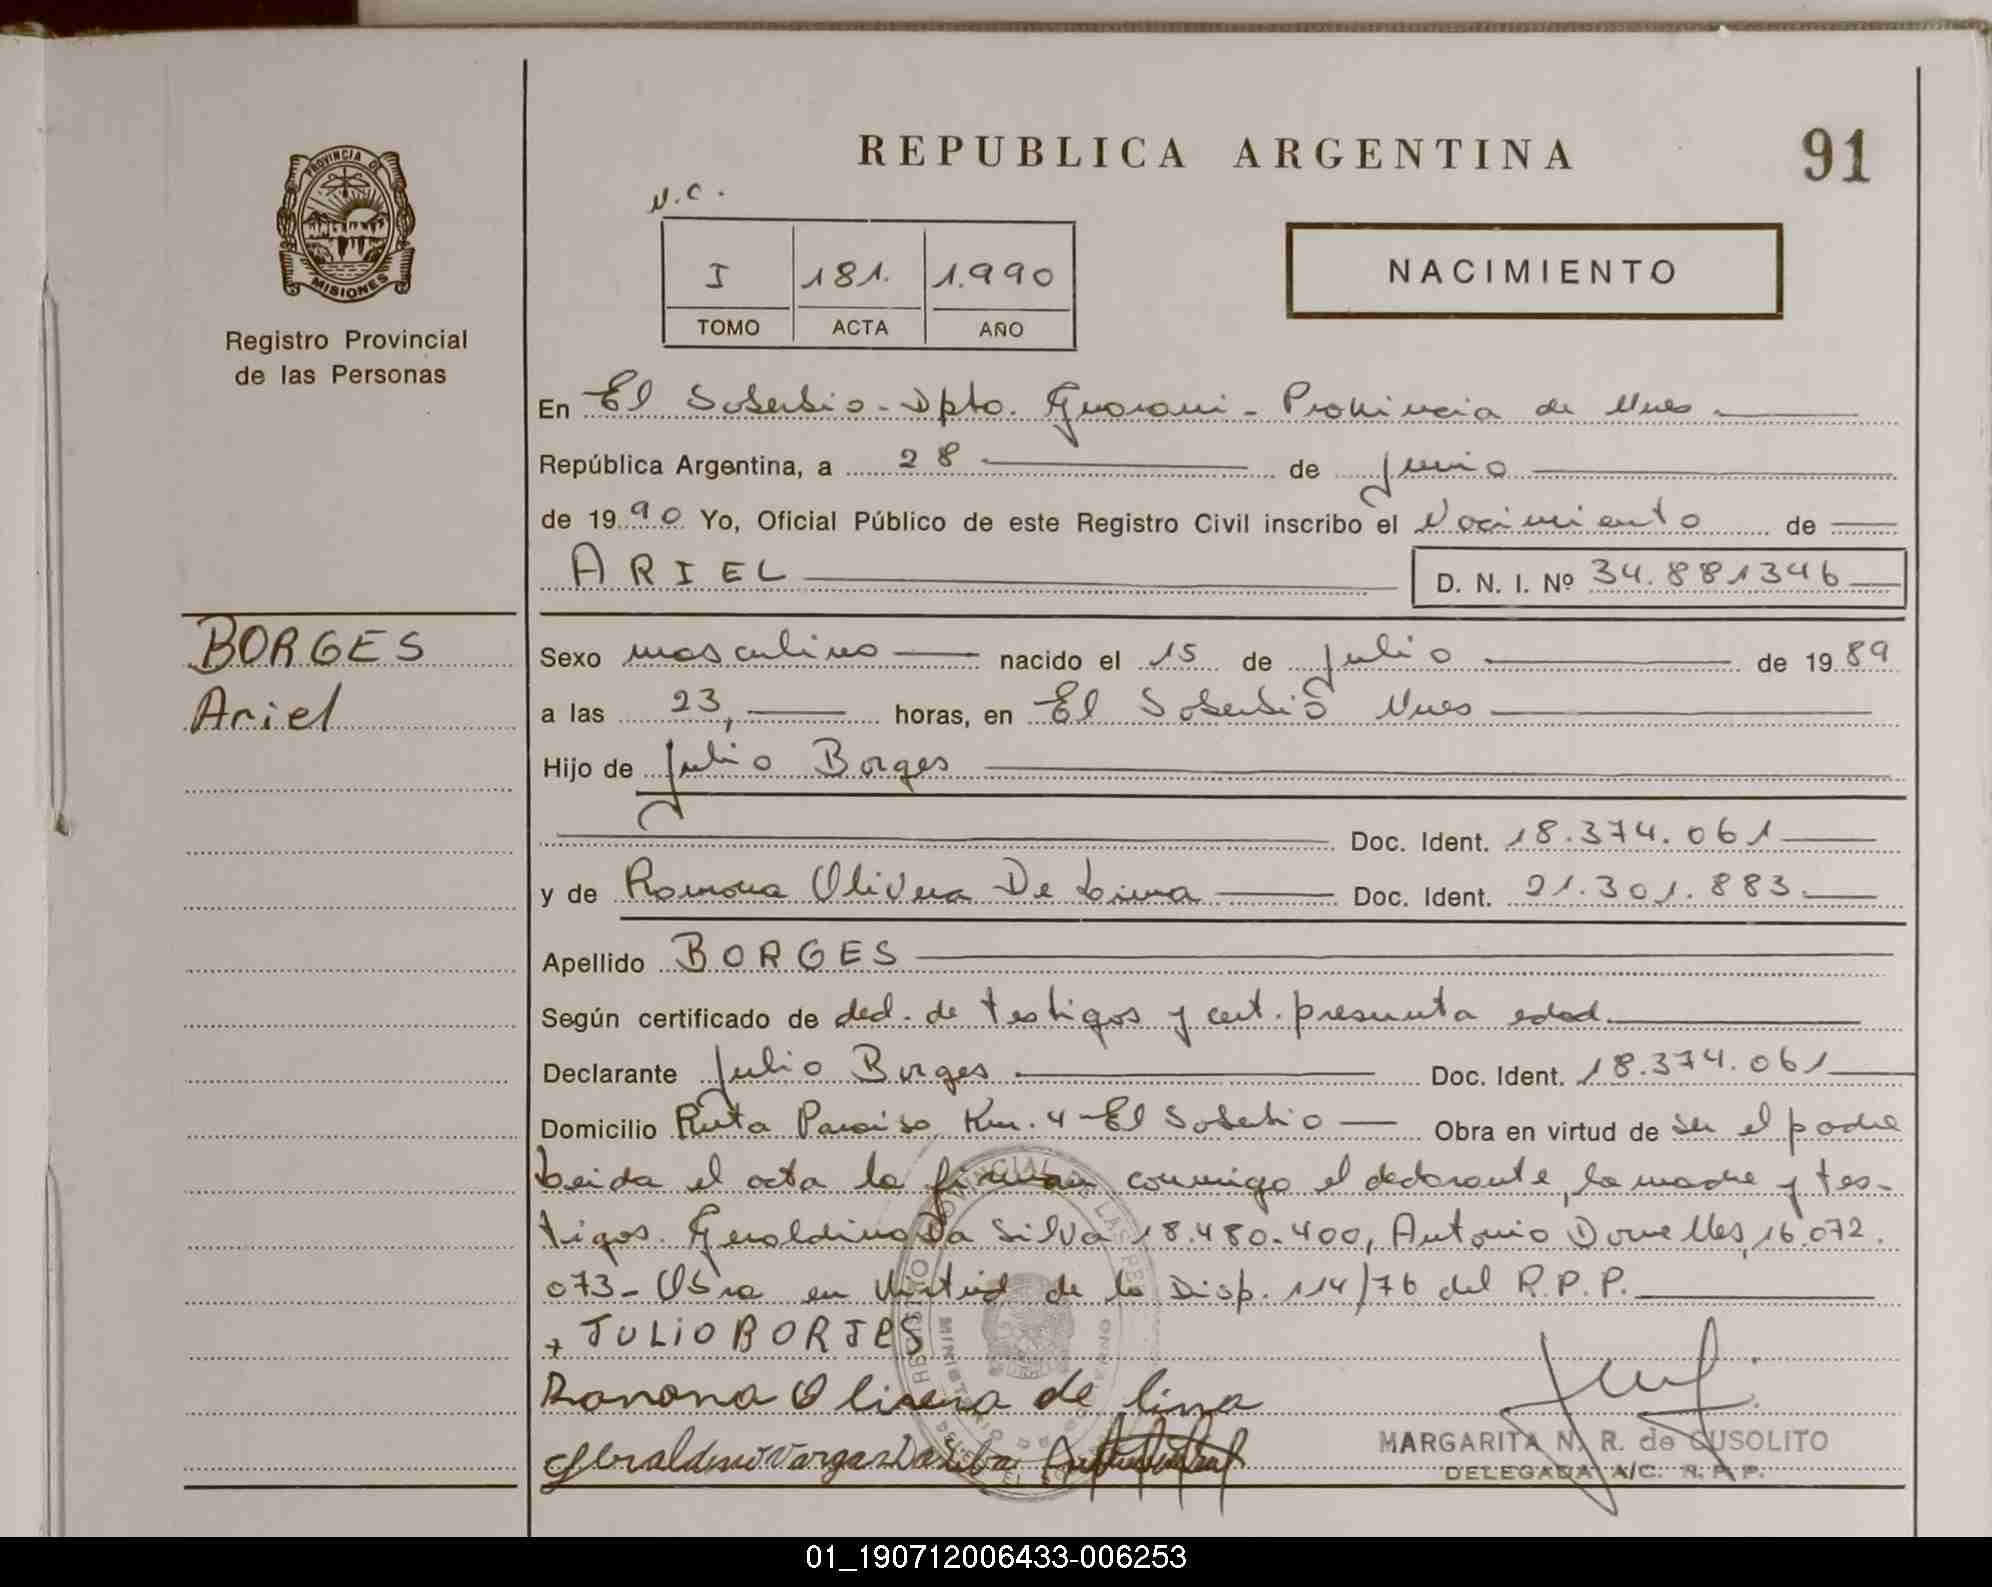 REPUBLICA ARGENTINA
91
PROVINCIA DE
MISIONES
Registro Provincial
de las Personas
N.C.
I 181. 1.990
TOMO ACTA AÑO
NACIMIENTO
En El Soberbio - Dpto. Guarani - Provincia de Mnes
República Argentina, a 28 de junio
de 1990 Yo, Oficial Público de este Registro Civil inscribo el Nacimiento de
ARIEL D. N. I. Nº 34.881346
BORGES
Ariel
Sexo masculino nacido el 15 de julio de 1989
a las 23, horas, en El Soberbio Mnes
Hijo de Julio Borges
Doc. Ident. 18.374.061
y de Ramona Olivera De Lima Doc. Ident. 21.301.883
Apellido BORGES
Según certificado de decl. de testigos y cert. presunta edad.
Declarante Julio Borges Doc. Ident. 18.374.061
Domicilio Ruta Paraiso Km. 4 - El Soberbio Obra en virtud de ser el padre
Leida el acta la firman conmigo el declarante, la madre y tes-
tigos. Geraldino Da Silva 18.480.400, Antonio Dornelles, 16.072.
073 - Obra en virtud de la Disp. 114/76 del R.P.P.
+ JULIO BORJES
Ramona Olivera de lima
Geraldino Vargas Da Silva
MARGARITA N. R. de CUSOLITO
DELEGADA A/C. R. P. P.
01_190712006433-006253